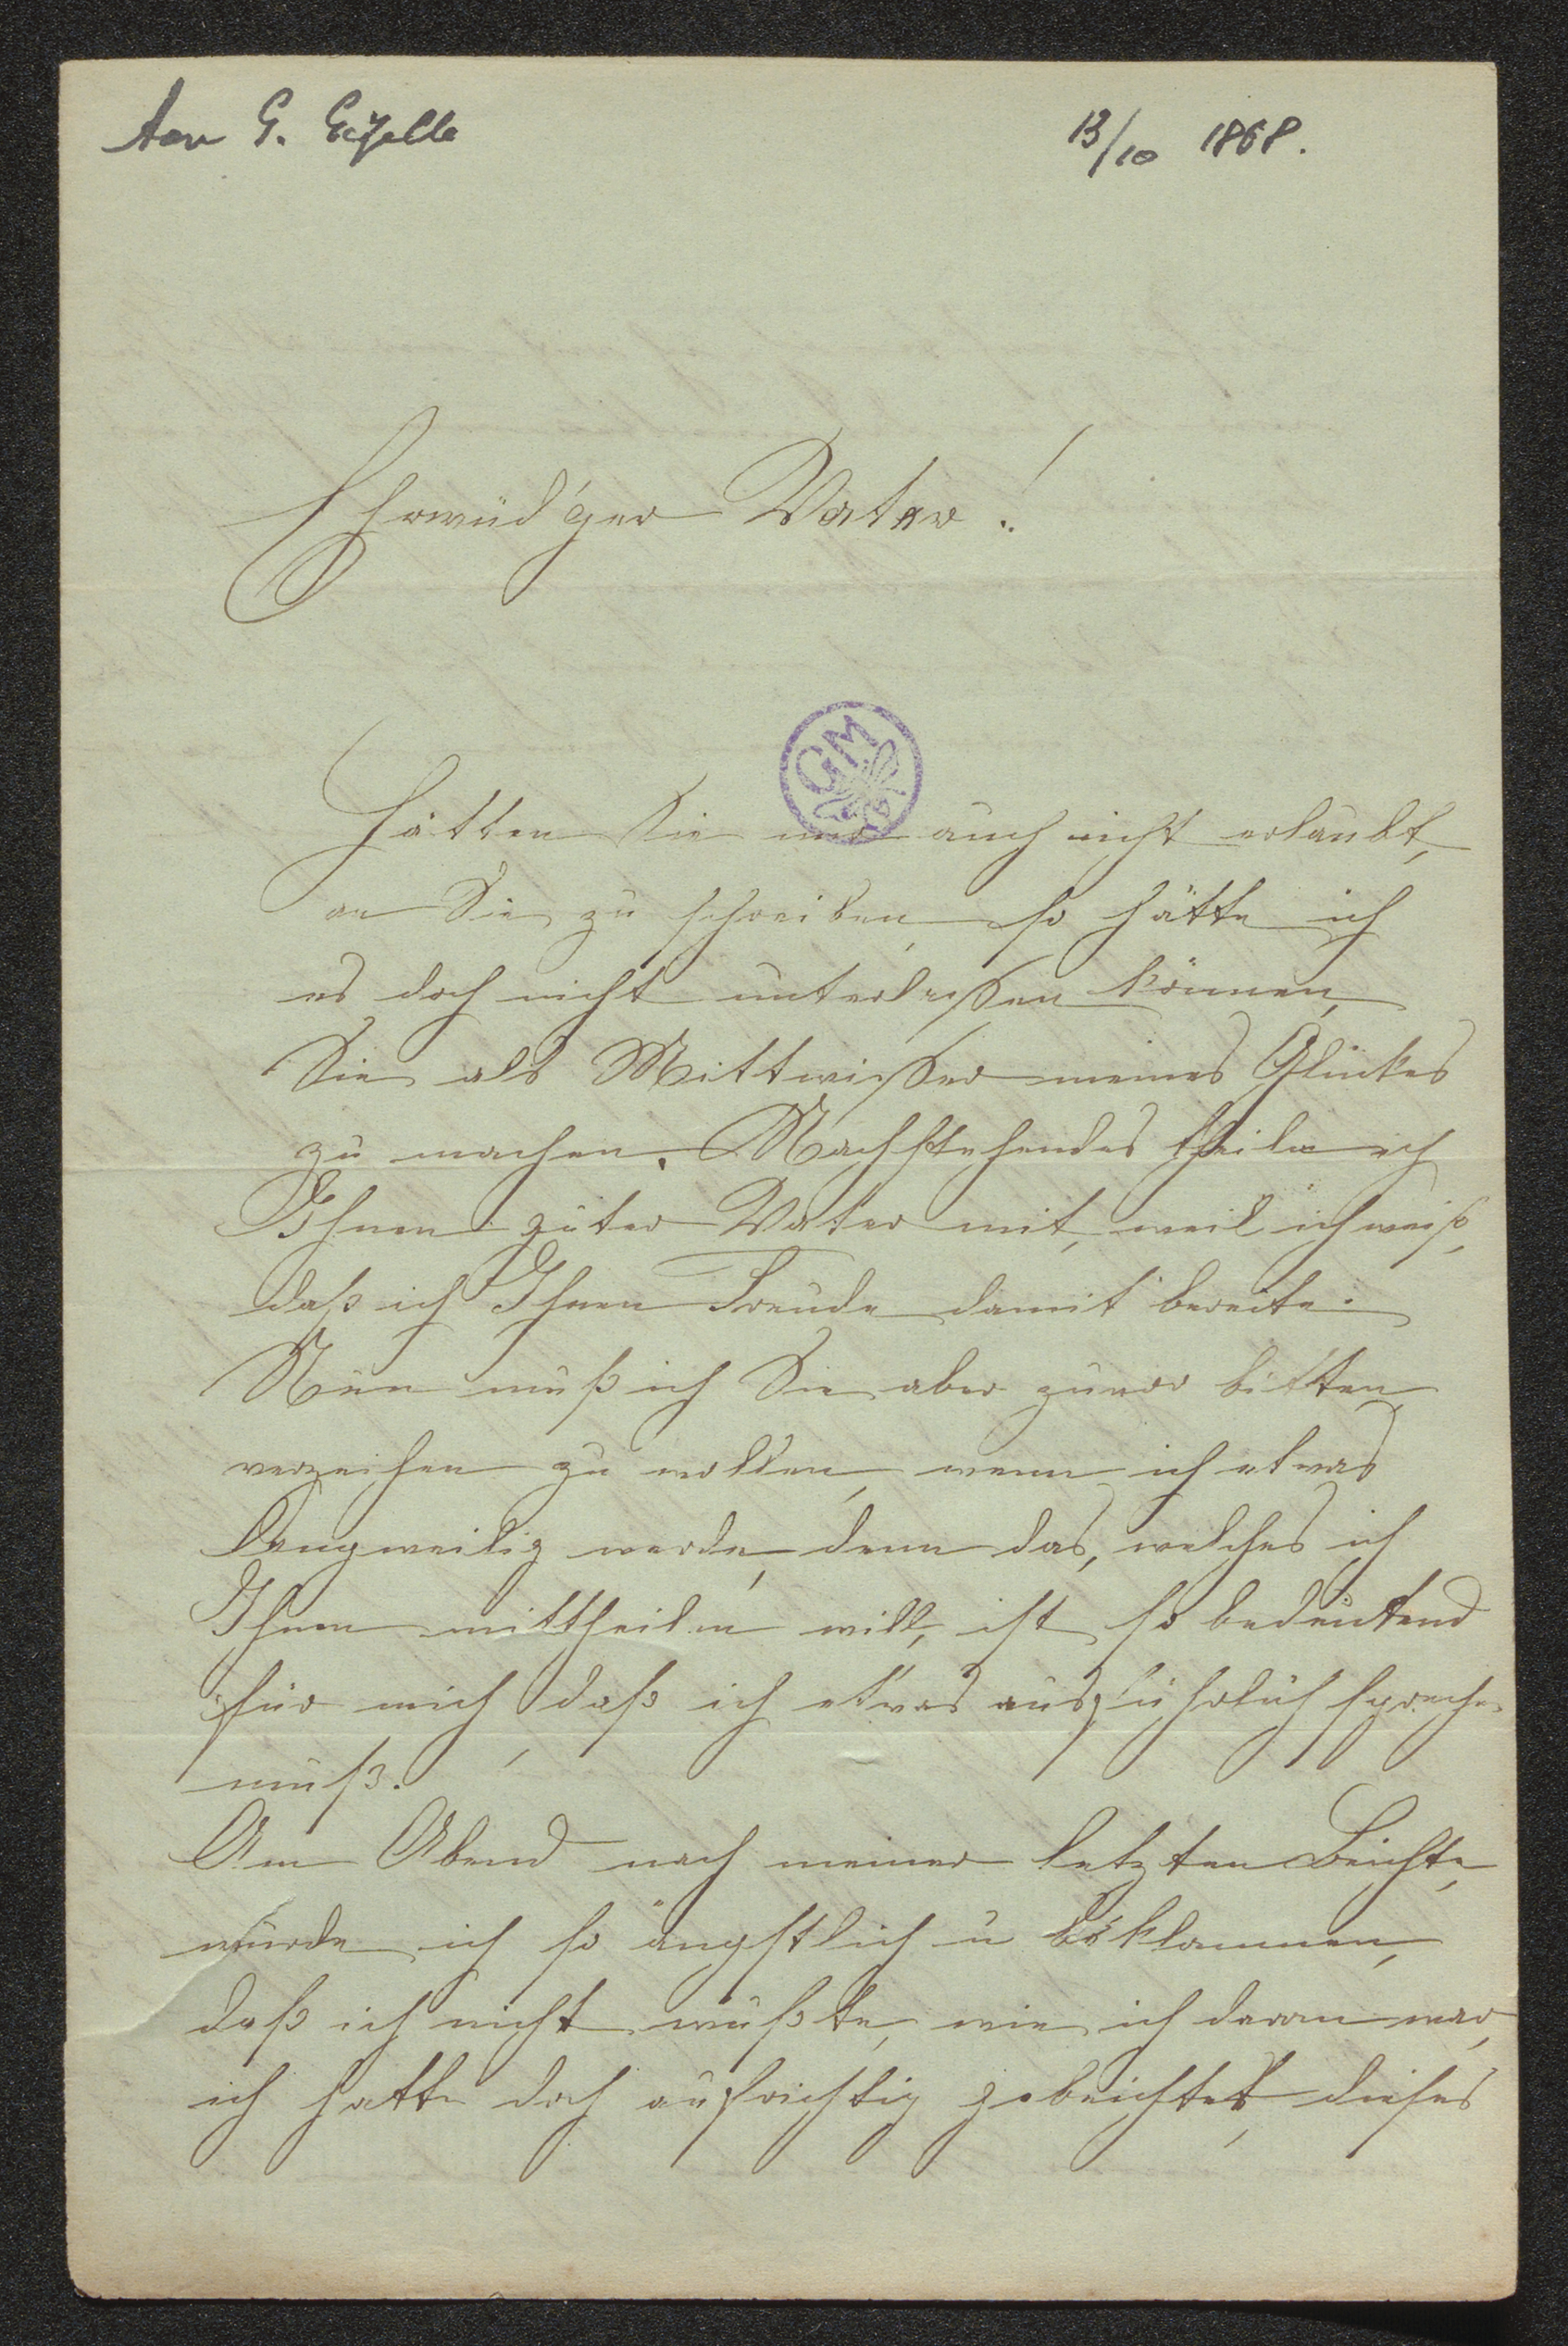 13/10 1868.
Ehrwüd'ger Vater!
GM
Hätten Sie mir auch nicht erlaubt,
an Sie zu schreiben, so hätte ich
es doch nicht unterlassen können,
Sie als Mittwisser meines Glückes
zu machen. Nachstehendes theile ich
Ihnen guter Vater mit, weil ich weiß,
daß ich Ihnen Freude damit bereite.
Nun muß ich Sie aber zuvor bitten,
verzeihen zu wollen, wenn ich etwas
langweilig werde, denn das, welches ich
Ihnen mittheilen will, ist so bedeutend
für mich, daß ich etwas ausführlich sprechen
muß.
Am Abend nach meiner letzten Beichte,
wurde ich so ängstlich u beklommen,
daß ich nicht wußte, wie ich daran war,
ich hatte doch aufrichtig gebeichtet, dieses